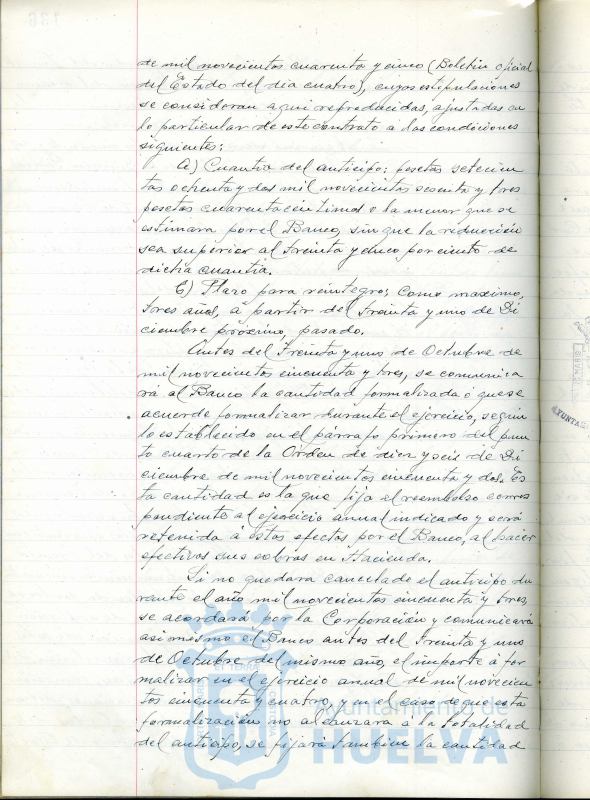 de mil novecientos cuarenta y cinco (Boletin oficial
del Estado del dia cuatro), cuyas estipulaciones
se consideran aqui reproducidas, ajustadas en
lo particular de este contrato a las condiciones
siguientes:
a) Cuantia del anticipo: pesetas setecien
tas ochenta y dos mil novecientas sesenta y tres
pesetas cuarenta centimos o la menor que se
estimara por el Banco, sin que la reducción
sea superior al treinta y cinco por ciento de
dicha cuantia.
b) Plazo para reintegro; como maximo,
tres años, a partir del treinta y uno de Di
ciembre próximo, pasado.
Antes del treinta y uno de Octubre de
mil novecientos cincuenta y tres, se comunica
rá al Banco la cantidad formalizada o que se
acuerde formalizar durante el ejercicio, segun
lo establecido en el párrafo primero del pun
to cuarto de la Orden de diez y seis de Di
ciembre de mil novecientos cincuenta y dos. Es
ta cantidad es la que fija el reembolso corres
pondiente al ejercicio anual indicado y será
retenida a estos efectos por el Banco, al hacer
efectivos sus cobros en Hacienda.
Si no quedara cancelado el anticipo du
rante el año mil novecientos cincuenta y tres,
se acordará por la Corporación y comunicará
asimismo el Banco antes del treinta y uno
de Octubre del mismo año, el importe a for
malizar en el ejercicio anual de mil novecien
tos cincuenta y cuatro, y en el caso de que esta
formalización no alcanzara a la totalidad
del anticipo, se fijará tambien la cantidad
Ayuntamiento de
HUELVA